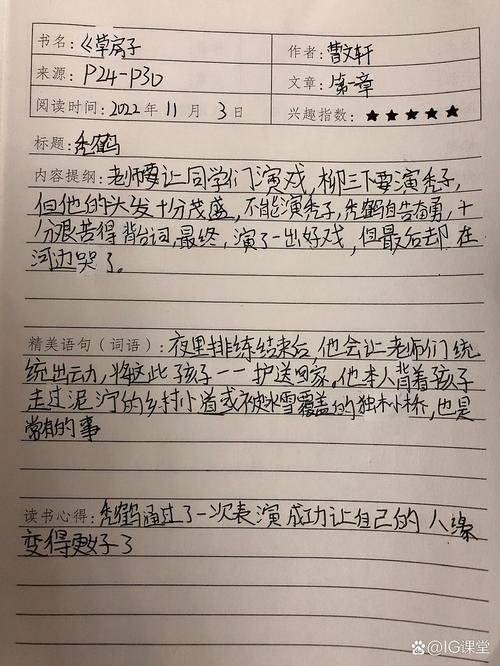 书名：《草房子
作者：曹文轩
来源：P24-P30
文章：第一章
阅读时间：2022年11月3日
兴趣指数：★★★★★
标题：秃鹤
内容提纲：老师要让同学们演戏，柳三下要演秃子，
但他的头发十分茂盛，不能演秃子，秃鹤自告奋勇，十
分艰苦得背台词，最终，演了一出好戏，但最后却在
河边哭了。
精美语句（词语）：夜里排练结束后，他会让老师们统
统出动，将这些孩子一一护送回家。他本人背着孩子
走过泥泞的乡村小道或被冰雪覆盖的独木小桥，也是
常有的事
读书心得：秃鹤通过了一次表演成功让自己的人缘
变得更好了
@IG课堂